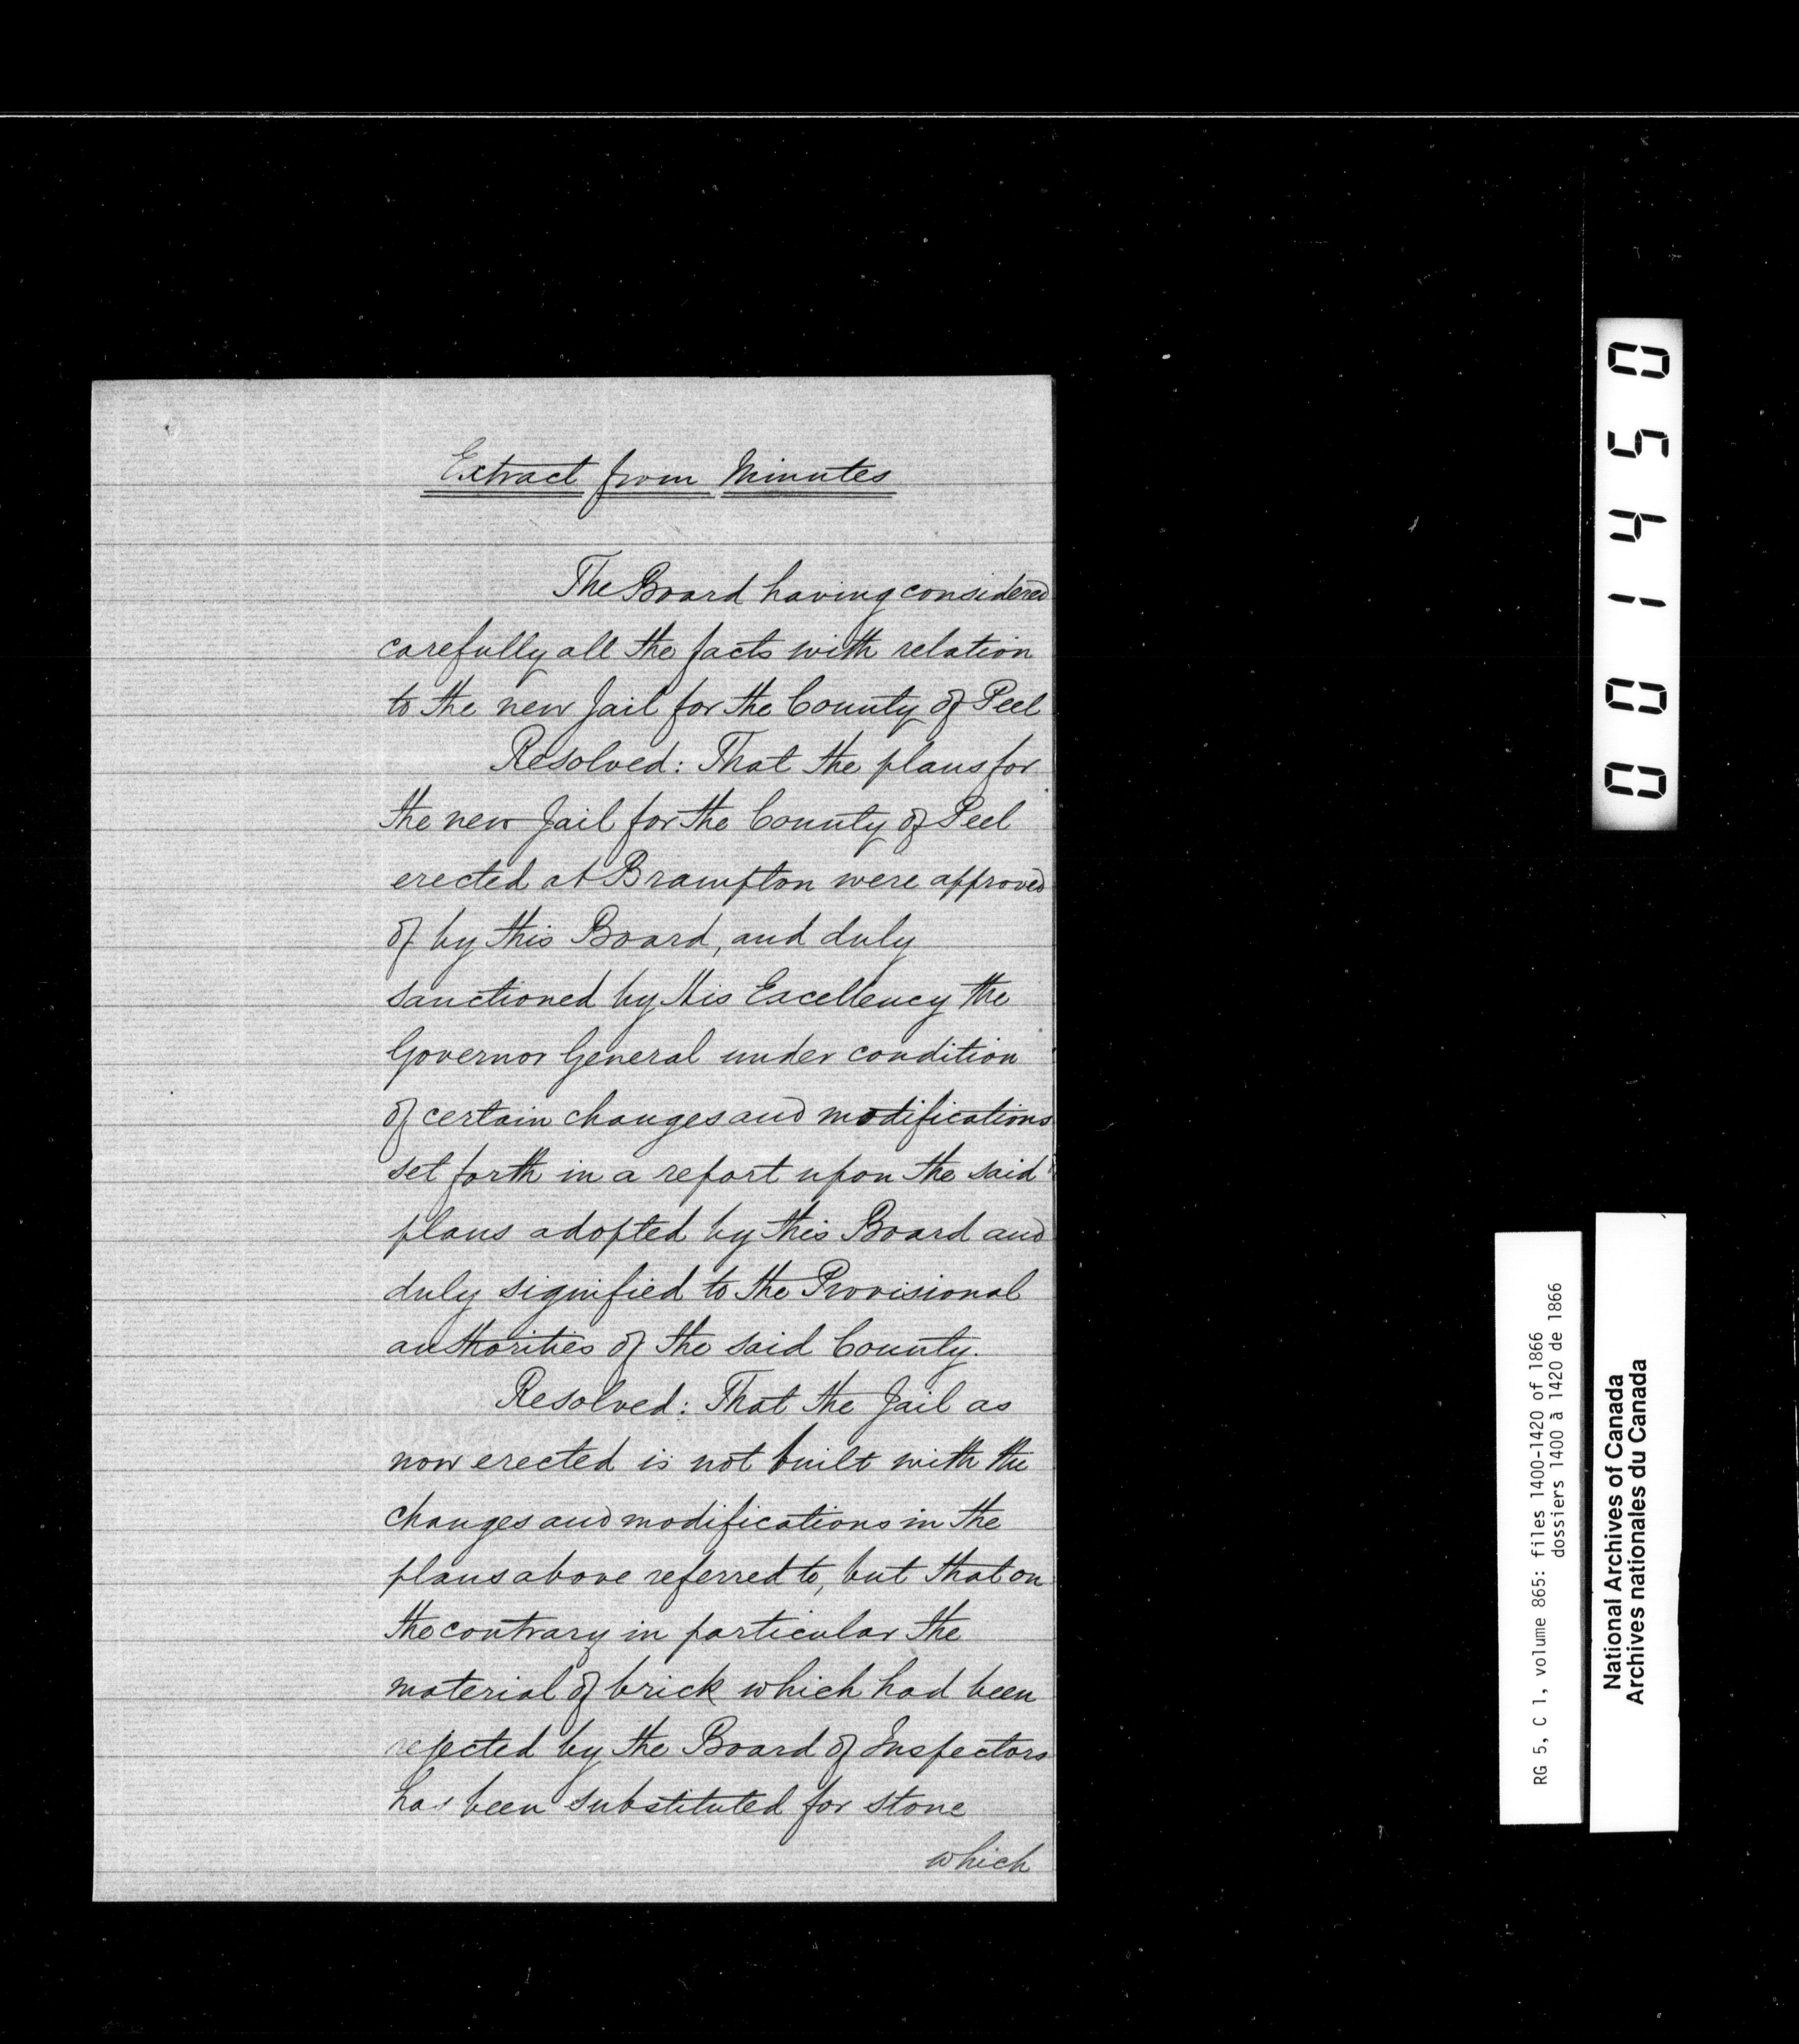 Extract from Minutes
The Board having considered
carefully all the facts with relation
to the new Jail for the County of Peel
Resolved: That the plans for
the new Jail for the County of Peel
erected at Brampton were approved
of by this Board, and duly
sanctioned by His Excellency the
Governor General under condition
of certain changes and modifications
set forth in a report upon the said
plans adopted by this Board and
duly signified to the Provisional
authorities of the said County.
Resolved: That the Jail as
now erected is not built with the
changes and modifications in the
plans above referred to, but that on
the contrary in particular the
material of brick which had been
rejected by the Board of Inspectors
has been substituted for stone
which
001450
RG 5, C 1, volume 865: files 1400-1420 of 1866
dossiers 1400 à 1420 de 1866
National Archives of Canada
Archives nationales du Canada